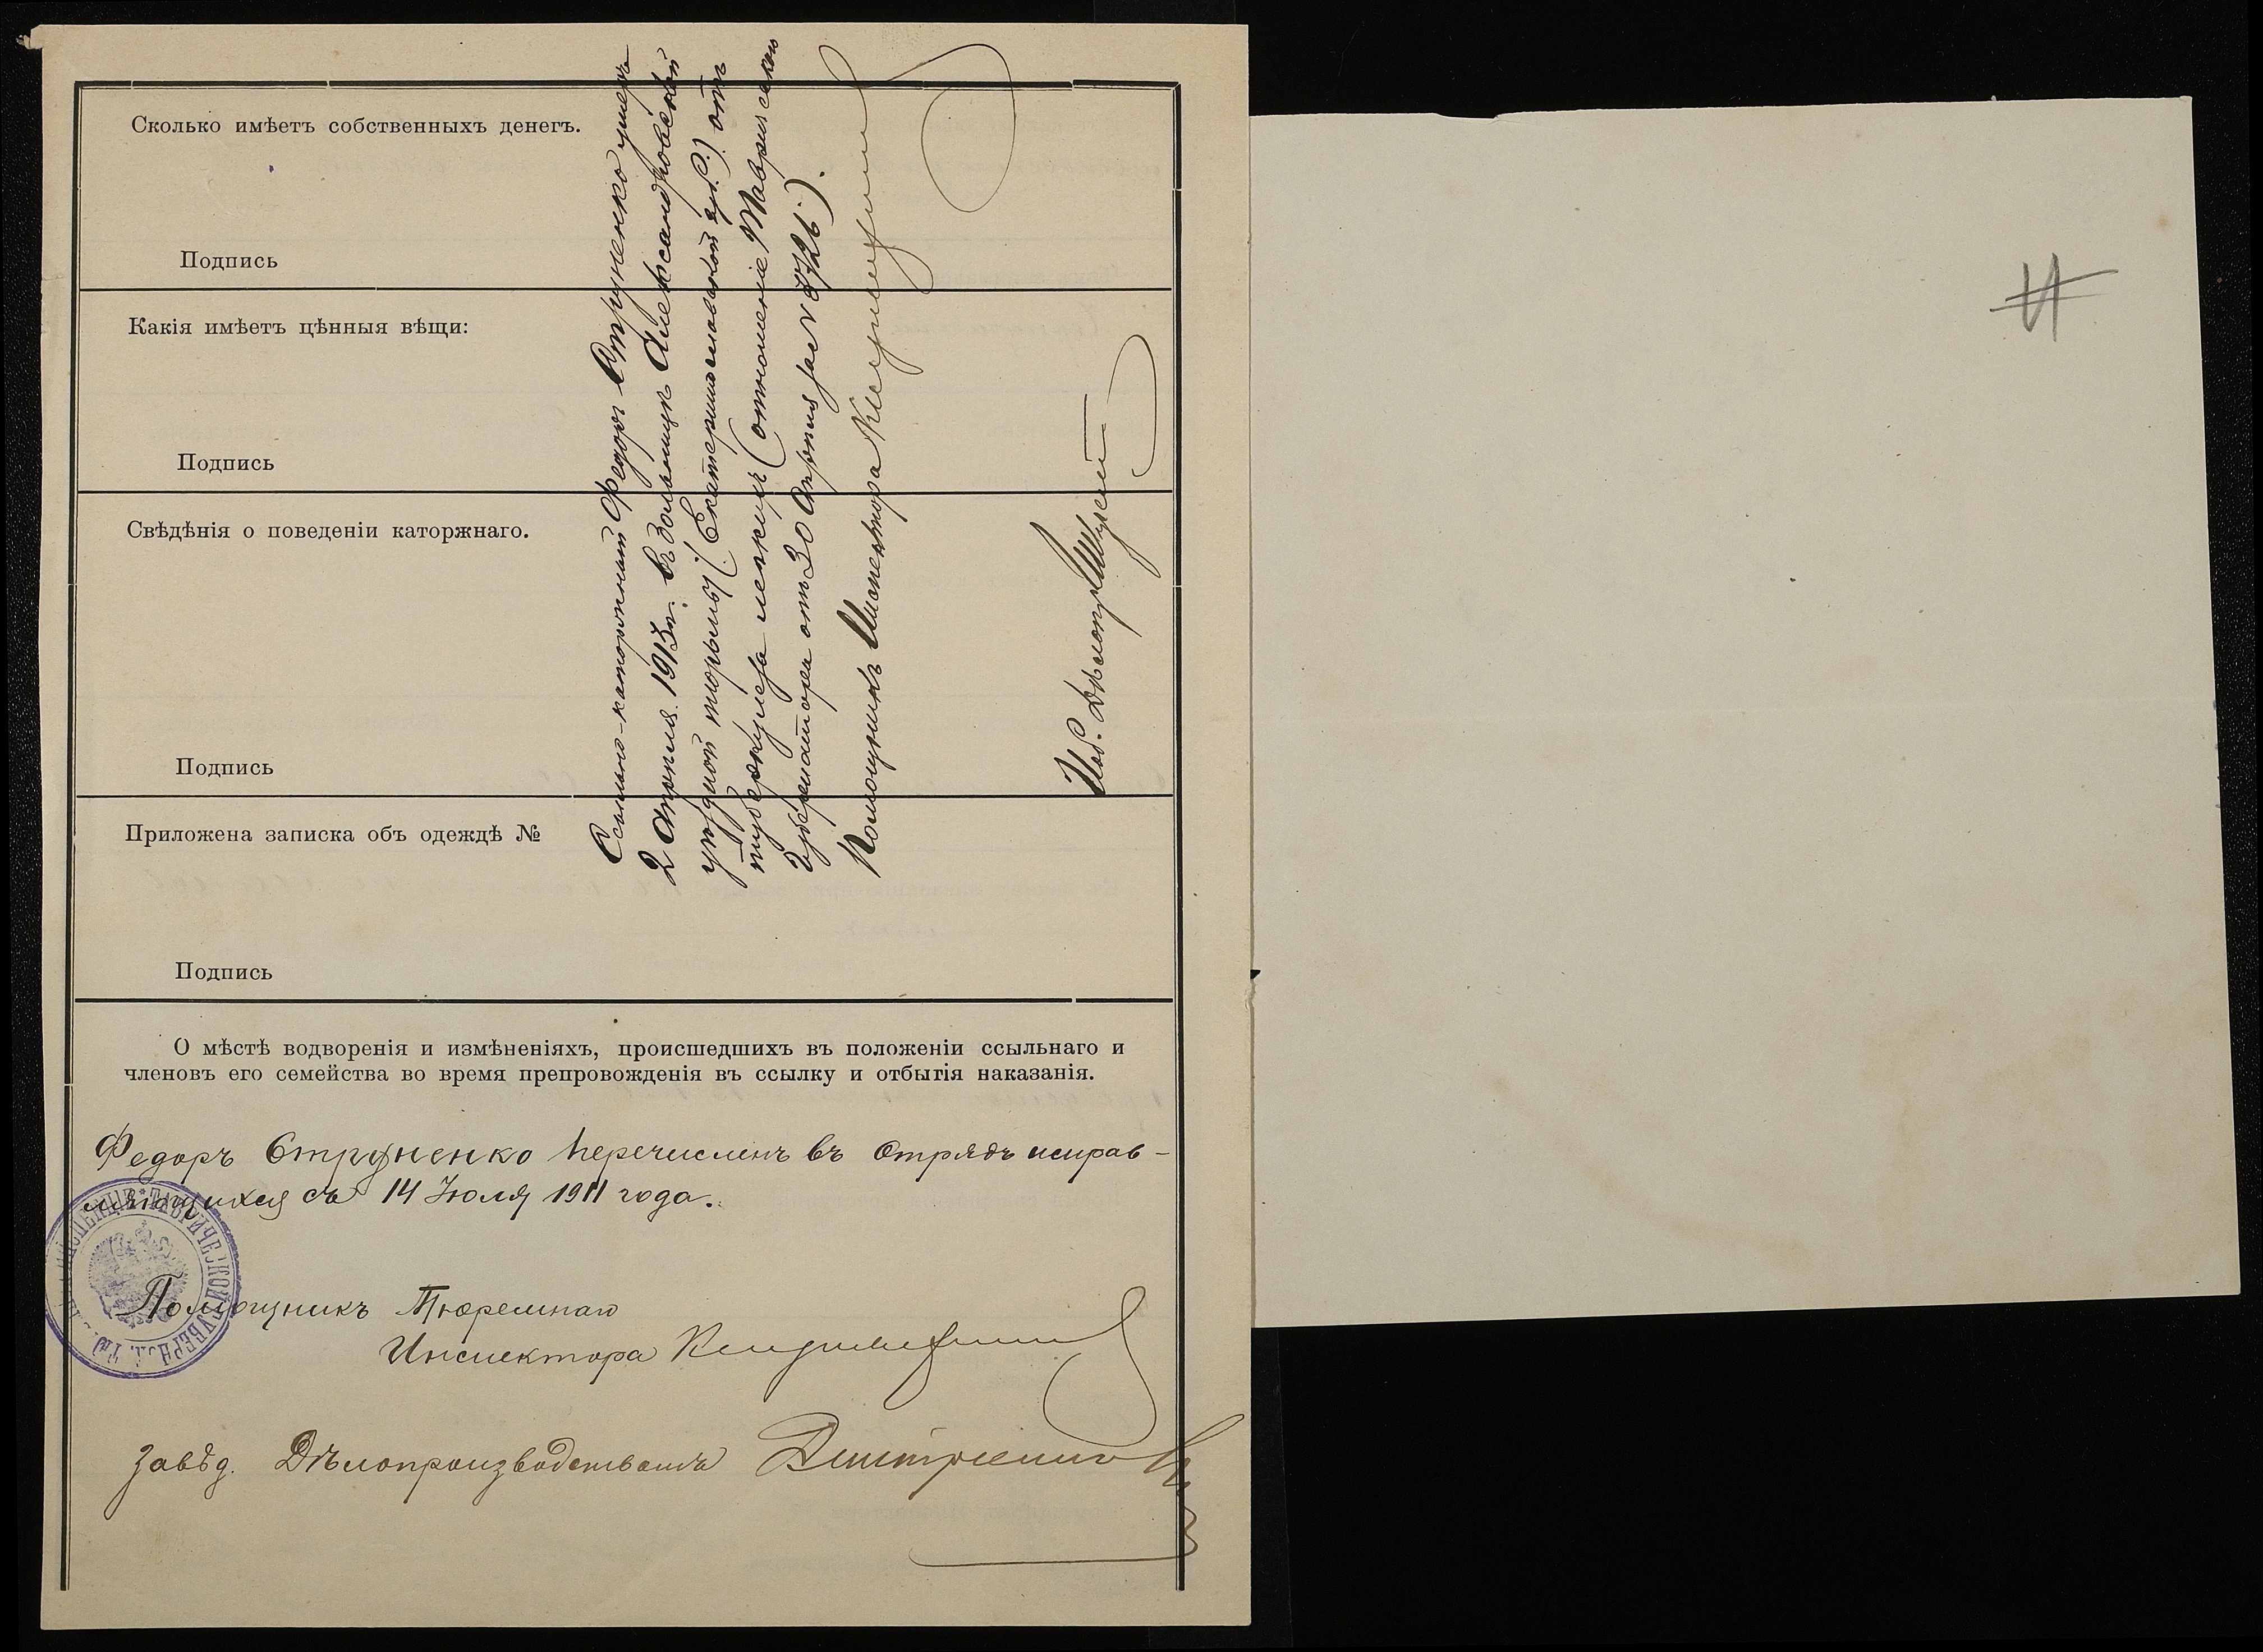 Сколько имѣетъ собственныхъ денегъ.
Подпись
Какія имѣетъ цѣнныя вѣщи:
Подпись
Свѣдѣнія о поведеніи каторжнаго.
Подпись
Приложена записка объ одеждѣ №
Подпись
Ссыльно-каторжный Федоръ Струненко умеръ
2 Апрѣля 1913 г. въ больницѣ Александровской
уѣздной тюрьмы (Екатеринославской губ.) отъ
туберкулеза легкихъ (отношеніе Таврическаго
Губернатора отъ 30 Апрѣля за № 8726).
Помощникъ Инспектора
О мѣстѣ водворенія и измѣненіяхъ, происшедшихъ въ положеніи ссыльнаго и
членовъ его семейства во время препровожденія въ ссылку и отбытія наказанія.
Федоръ Струненко перечисленъ въ отрядъ исправ-
ляющихся съ 14 Іюля 1911 года.
Помощникъ Тюремнаго
Инспектора
Завѣд. Дѣлопроизводствомъ